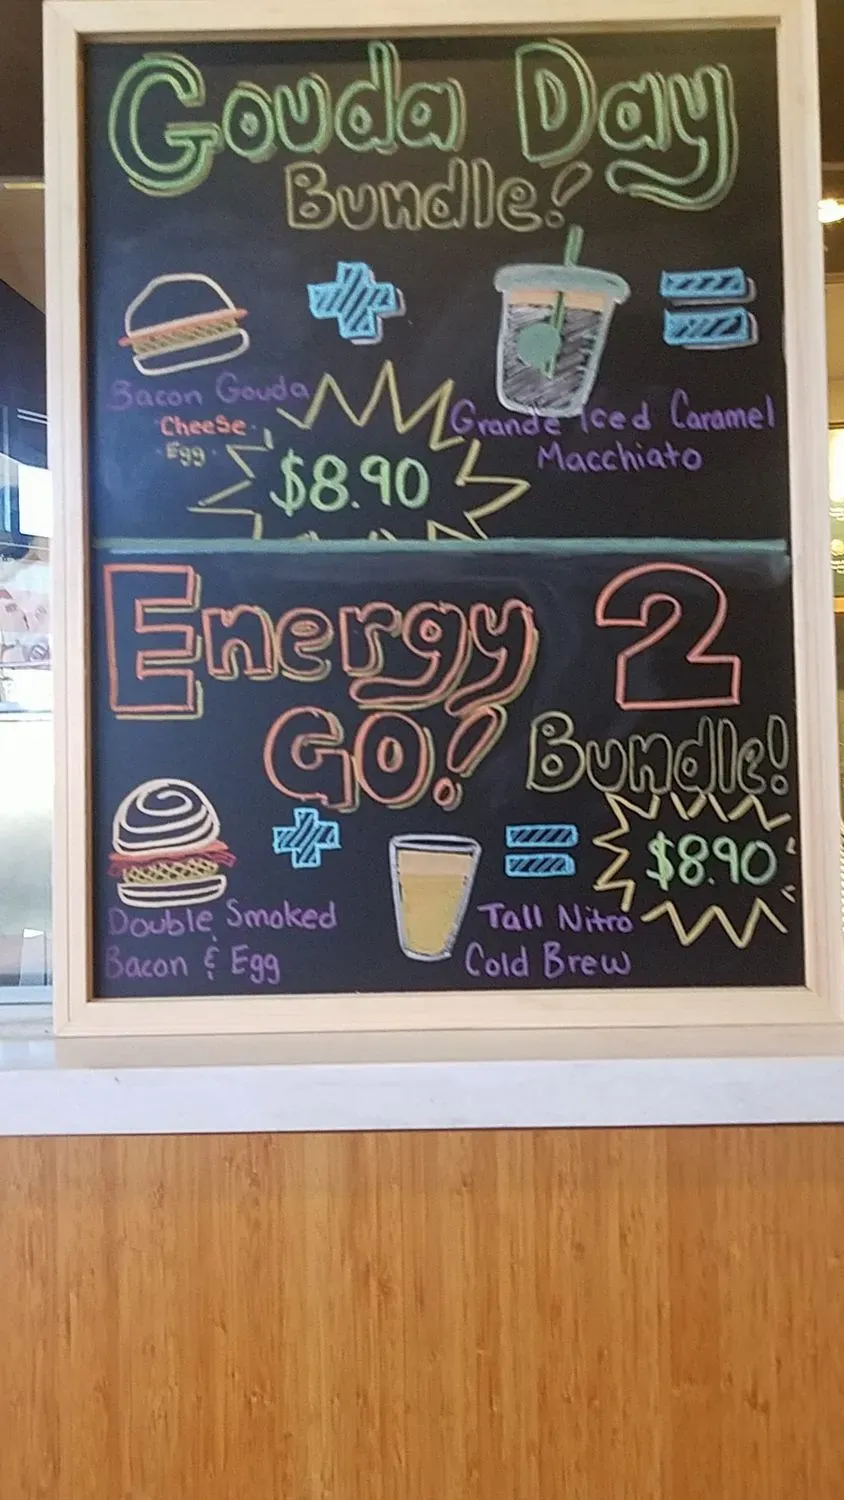 Gouda Day
Bundle!
Bacon Gouda
Cheese
Egg
Grande Iced Caramel
Macchiato
$8.90
Energy 2
GO! Bundle!
$8.90
Double Smoked
Bacon & Egg
Tall Nitro
Cold Brew